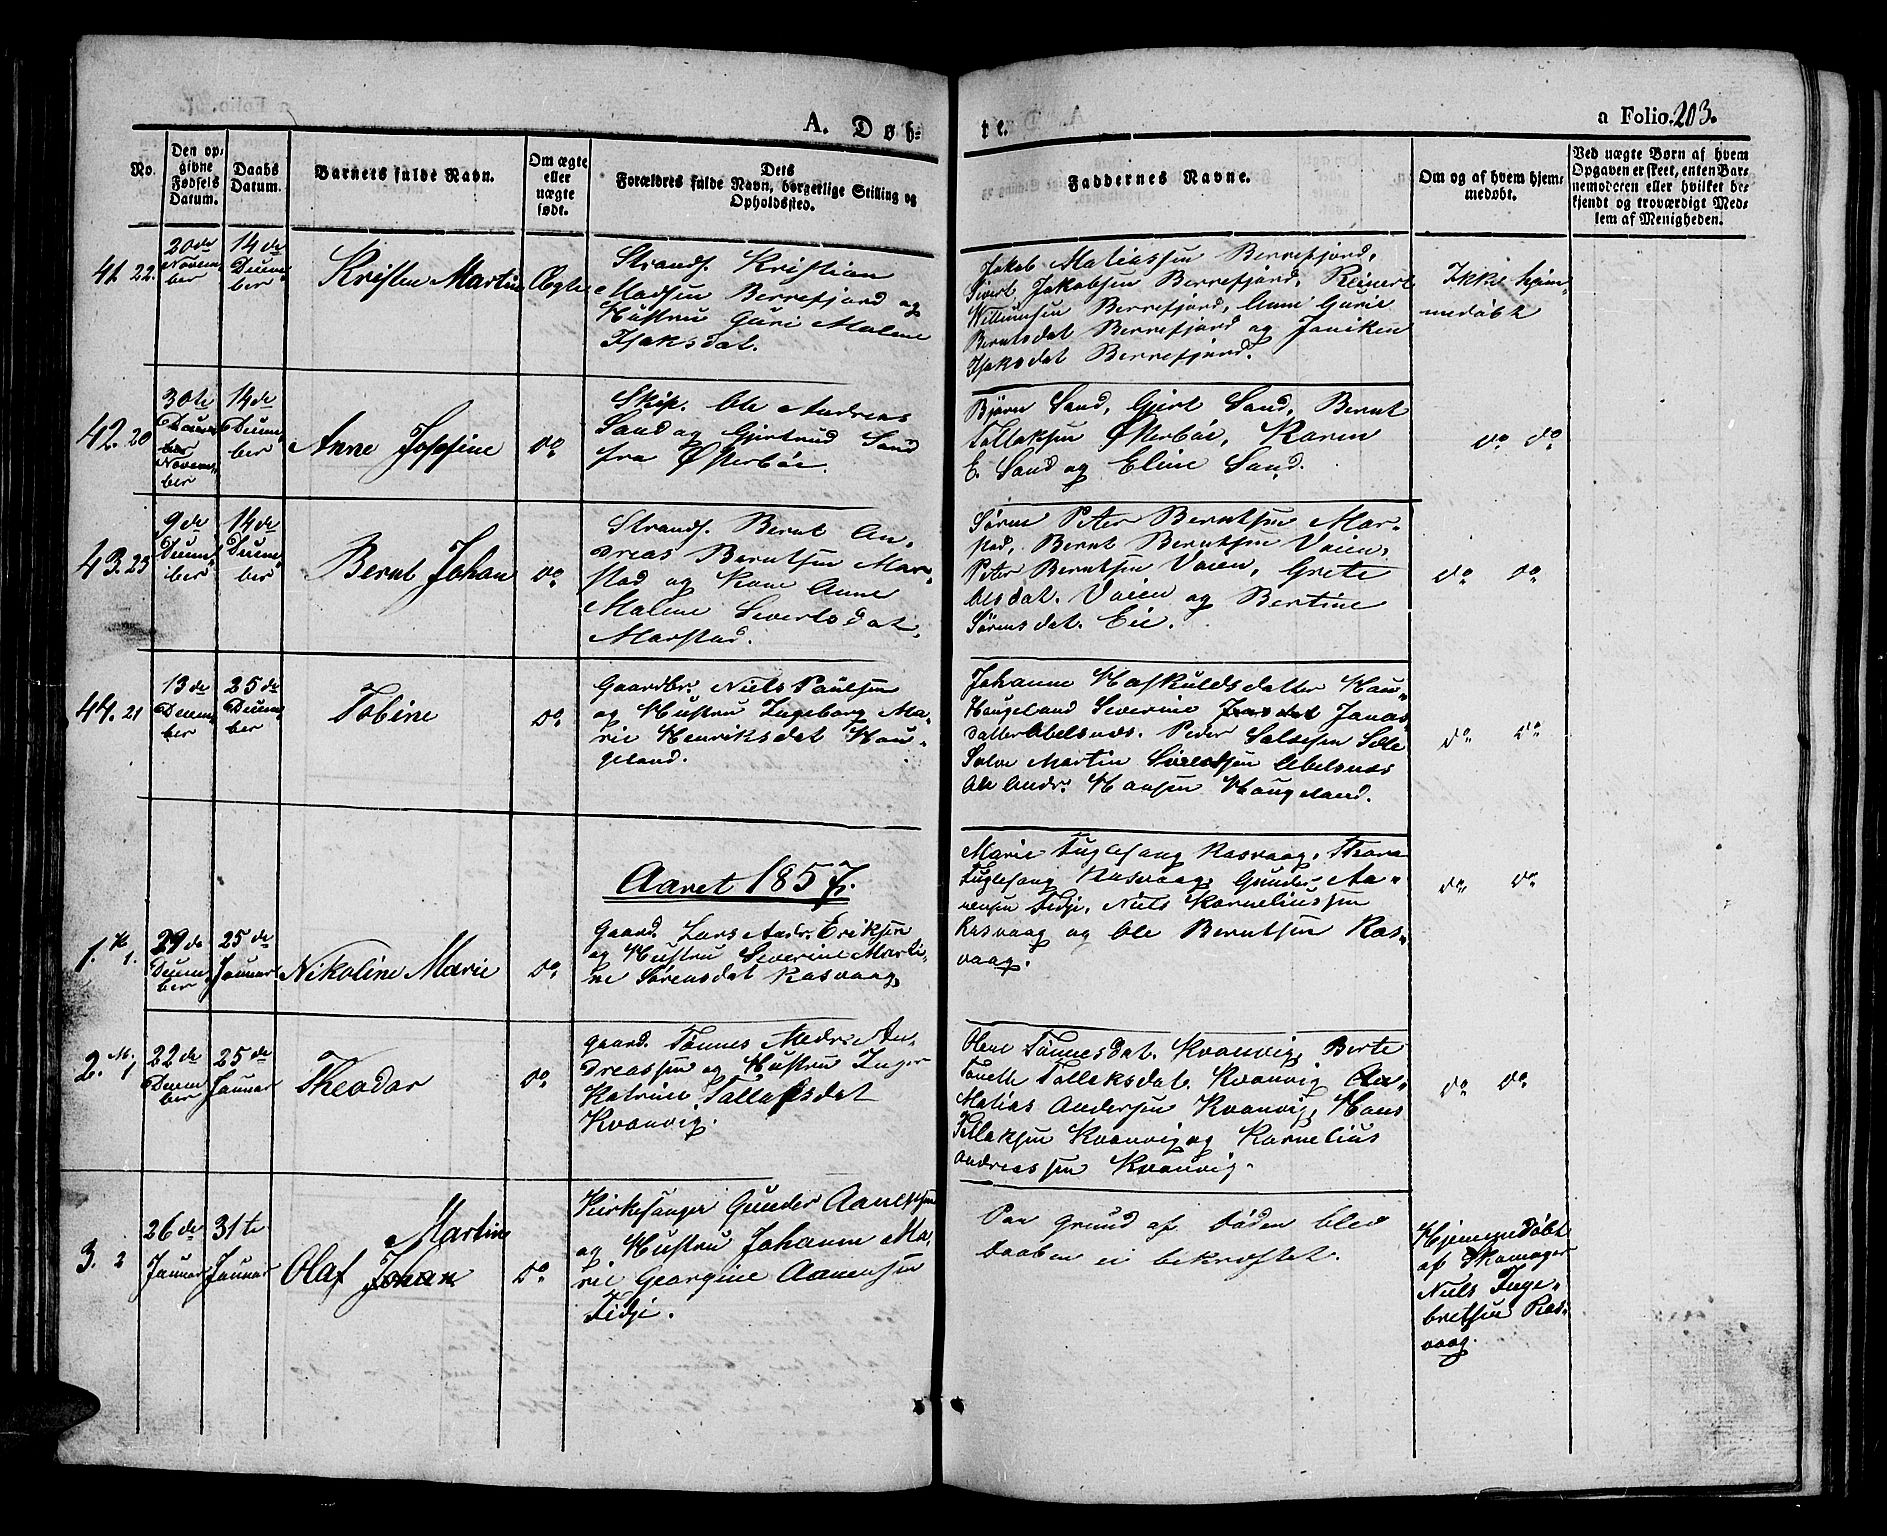 A. Døb-
te.
a Folio. 203.
No.
Den op-
givne
Fødsels
Datum.
Daabs
Datum.
Barnets fulde Navn.
Om ægte
eller
uægte
født.
Dets
Forældres fulde Navn, borgerlige Stilling og
Opholdssted.
Faddernes Navne.
Om og af hvem hjem-
medøbt.
Ved uægte Børn af hvem
Opgaven er skeet, enten Bar-
nemoderen eller hvilket be-
kjendt og troværdigt Med-
lem af Menigheden.
41. 22.
20de
Novem-
ber
14de
Decem-
ber
Kristen Martin
Ægte
Strands. Kristian
Madsen Berrefjord og
Hustru Guri Malene
Isaksdat.
Jakob Matiassen Berrefjord,
Sivert Jakobsen Berrefjord, Reinert
Willumsen Berrefjord, Anne Gurie
Berntsdat Berrefjord og Janiken
Isaksdat Berrefjord.
Ikke hjem-
medøbt
42. 20
30te
Decem-
ber
Novem-
ber
14de
Decem-
ber
Anne Josefine
do
Skip. Ole Andreas
Sand og Gjertrud Sand
fra Østerbøe.
Bjørn Sand, Gjert Sand, Bernt
Tollaksen Østerbøe, Karen
E. Sand og Eline Sand.
do do
43. 23
9de
Decem-
ber
14de
Decem-
ber
Bernt Johan
do
Strands. Bernt An-
dreas Berntsen Mar-
stad og Kone Anne
Malene Sivertsdat.
Marstad.
Søren Peter Berntsen Mar-
stad, Bernt Berntsen Vaien,
Peter Berntsen Vaien, Grete
desdat. Vaien og Bertine
Sørensdat. Eie.
do do
44. 21
13de
Decem-
ber
25de
Decem-
ber
Tobine
do
Gaardbr. Niels Paulsen
og Hustru Ingeborg Ma-
rie Henriksdat Hau-
geland.
Johanne Haskuldsdatter Hau-
Haugeland Severine Jonas
datter Abelsnæs. Peder Salvesen
Salve Martin Abelsnæs
Ole Andr. Hansen Haugeland.
do do
Aaret 1857.
1. K 1.
29de
Decem-
ber
25de
Januar
Nikoline Marie
do
Gaard. Lars Andr. Eriksen
og Hustru Severine Marti-
ne Sørensdat Rasvaag.
Marie Fuglesang Rasvaag, Thora
Fuglesang Rasvaag, Gunder Aa-
nensen Fidje, Niels Korneliussen
Rasvaag og Ole Berntsen Ras-
vaag.
do do
2. M. 1
22de
Decem-
ber
25de
Januar
Theodor
do
Gaard. Tønnes An-
dreassen og Hustru Inger
Katrine Tallaksdat
Kvanvig.
Olene Tønnesdat. Kvanvig, Berte
Tollaksdat. Kvanvig
Matias Andersen Kvanvig, Hans
Tollaksen Kvanvig og Kornelius
Andreassen Kvanvig.
do do
3. 2
26de
Januar
31te
Januar
Martin
Olaf Johan
do
Kirkesanger Gunder Aanensen
og Hustru Johanne Ma-
rie Georgine Aanensen
Fidje.
Paa Grund af Døden blev
Daaben ei bekræftet.
Hjemmedøbt
af Skomager
Niels Inge-
bretsen Ras-
vaag.